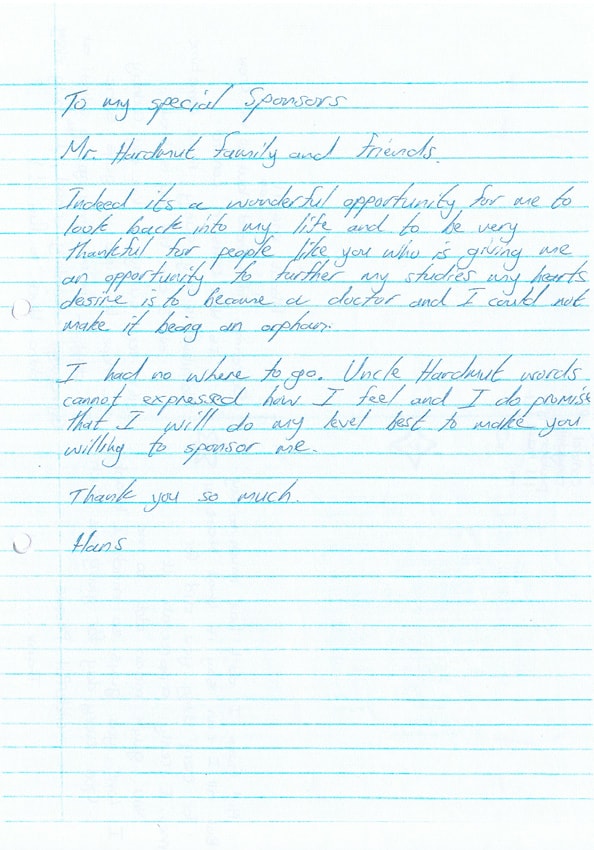 To my special Sponsors
Mr. Hardmut Family and friends.
Indeed its a wonderful opportunity for me to
look back into my life and to be very
thankful for people like you who is giving me
an opportunity to further my studies my hearts
desire is to became a doctor and I could not
make it being an orphan.
I had no where to go. Uncle Hardmut words
cannot expressed how I feel and I do promise
that I will do my level best to make you
willing to sponsor me.
Thank you so much.
Hans